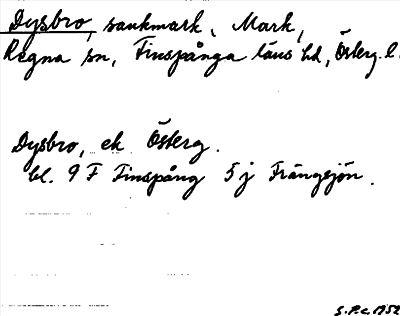 Dysbro, sankmark, Mark,
Regna sn, Finspånga läns hd, Österg. l.
Dysbro, ek Österg.
bl. 9 F Finspång 5 j Trängsjön.
S.P.c. 1952